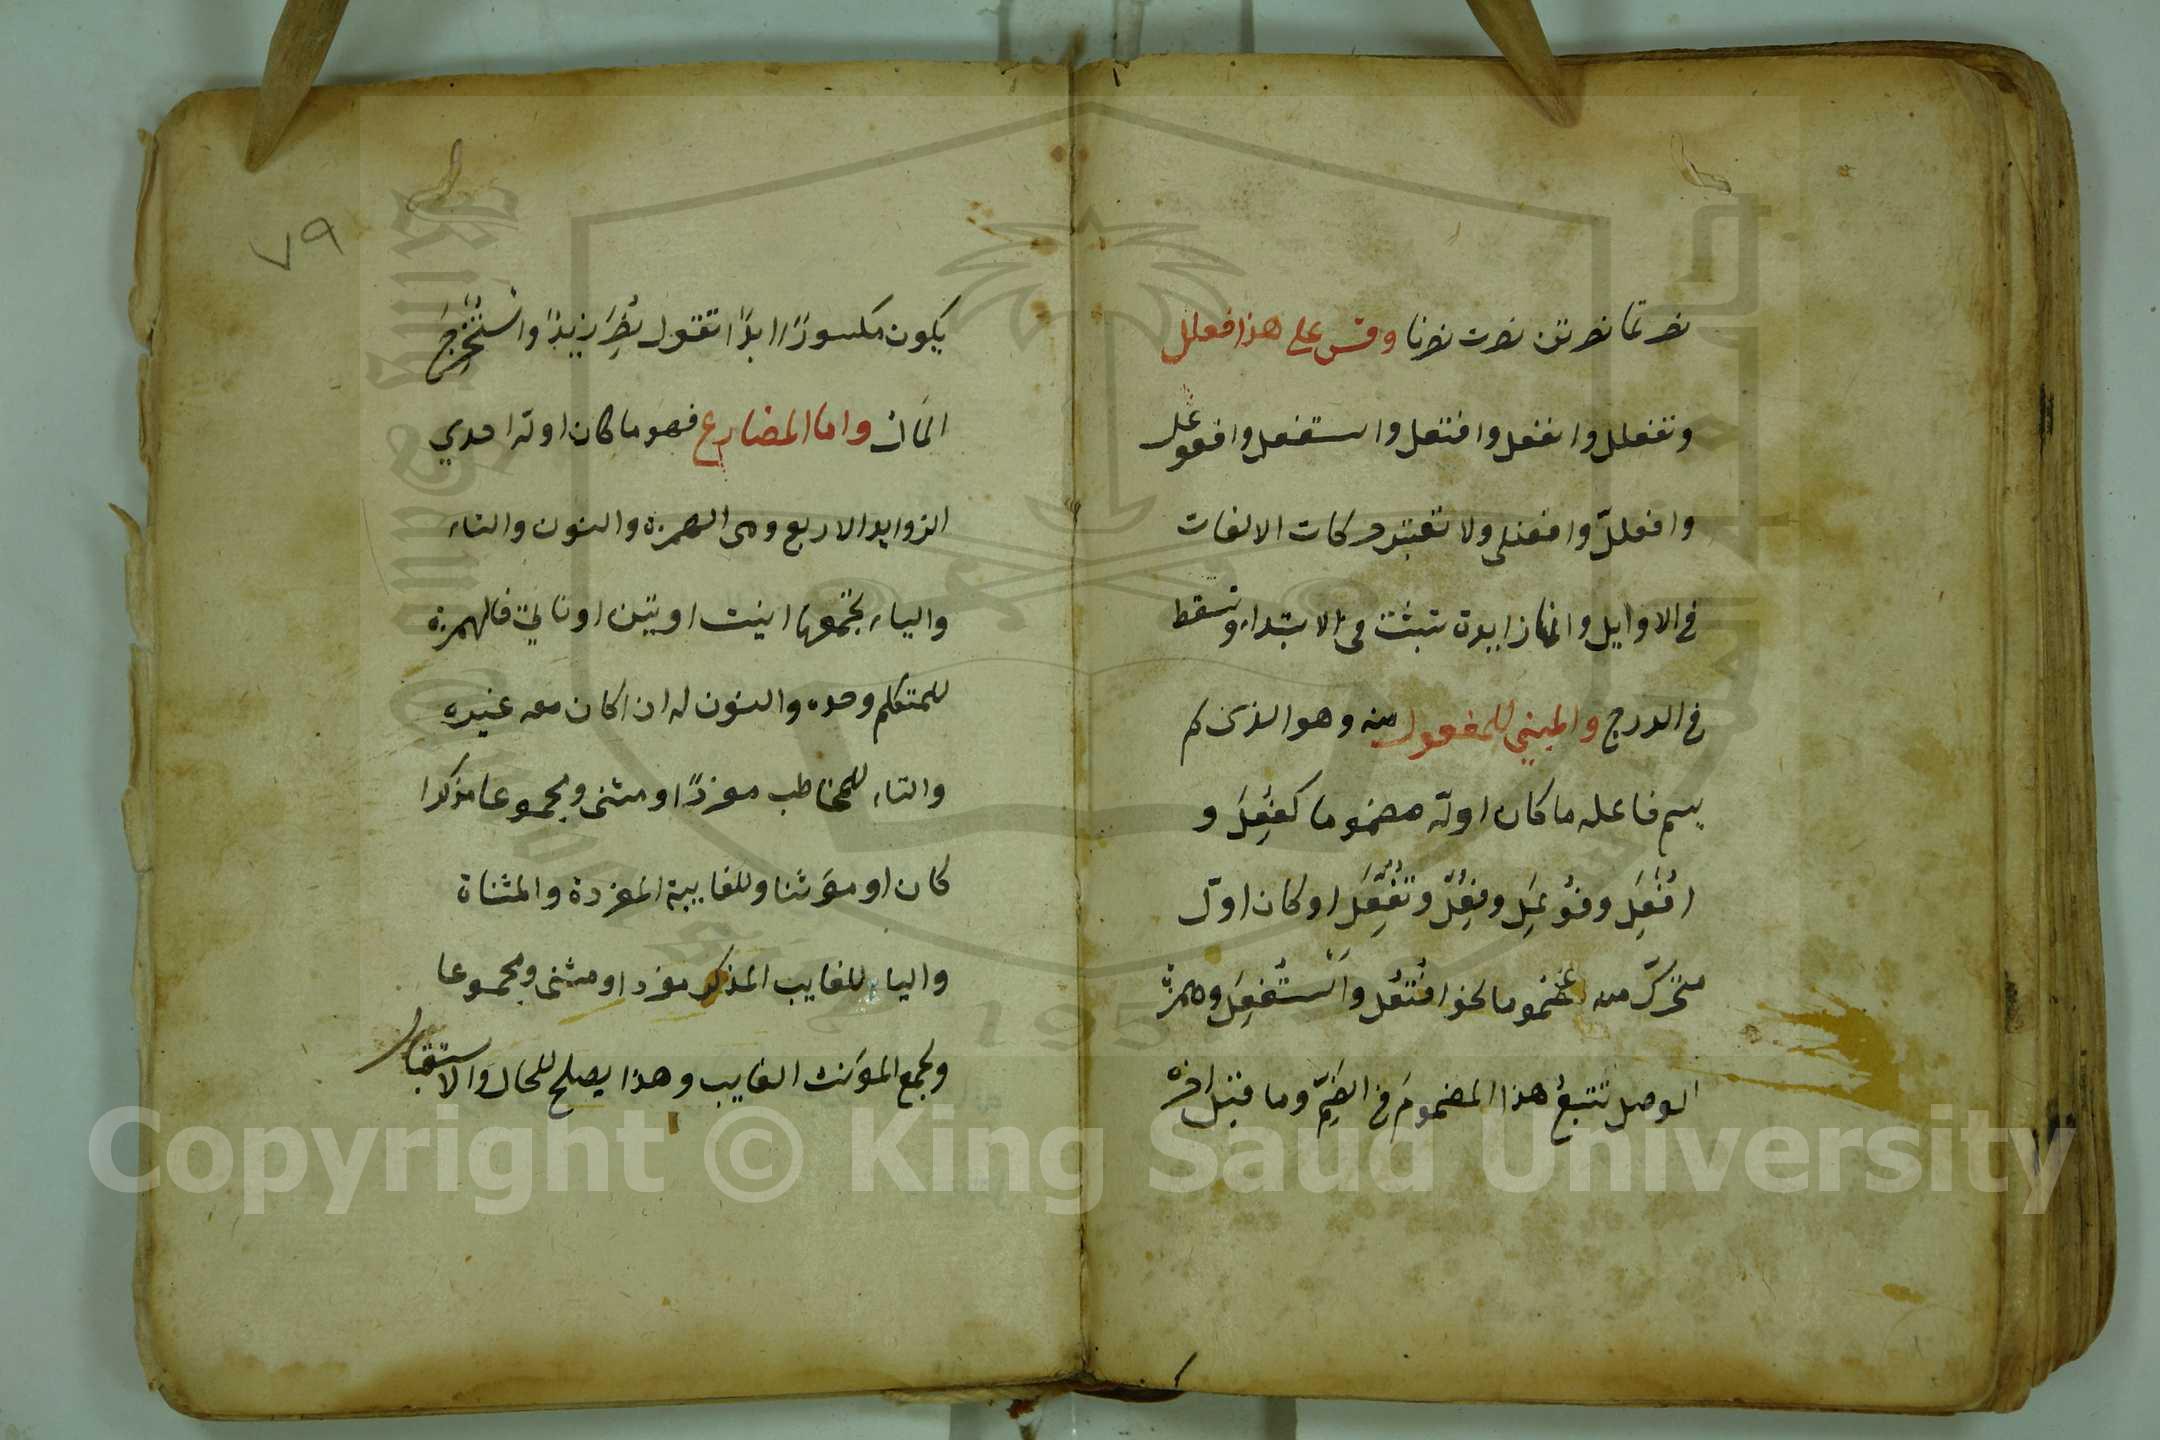 نصرتما نصرتن نصرت نصرنا وقس على هذا فعلل
وتفعلل وانفعل وافتعل واستفعل وافعوعل
وافعللّ وافعنلى ولا تعتبر حركات الالفات
في الاوايل وانها زايدة تثبت في الابتداء وتسقط
في الدرج والمبني للمفعول منه وهو الذي لم
يسم فاعله ما كان اولّه مضموما كفُعِلَ و
اُفْعِلَ وفُوعِلَ وفُعِّلَ وتُفُعِّلَ او كان اوّل
متحرك منه مضموما نحو افتُعِل واُسْتُفْعِلَ وهمزة
الوصل تتبعُ هذا المضمومَ في الضَمِّ وما قبل اخره
٧٩
يكون مكسورًا ابدًا تقول نُصِرَ زيدًا واسْتُخْرِجَ
المال واما المضارع فهو ما كان اوله احدي
الزوايد الاربع وهى الهمزة والنون والتاء
والياء يجمعها انيت او نتين او ناتي فالهمزة
للمتكلم وحده والنون له اذا كان معه غيره
والتاء للمخاطب مفردًا او مثنى ومجموعا مذكرا
كان او مؤنثا وللغايبة المفردة والمثناة
والياء للغايب المذكر مفردا ومثنى ومجموعا
ولجمع المؤنث الغايب وهذا يصلح للحال والاستقبال
Copyright © King Saud University
King Saud University
1957